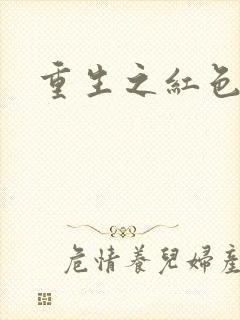 重生之紅色
危情養兒婦產